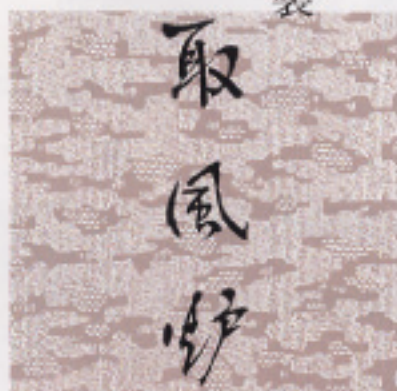 取風炉